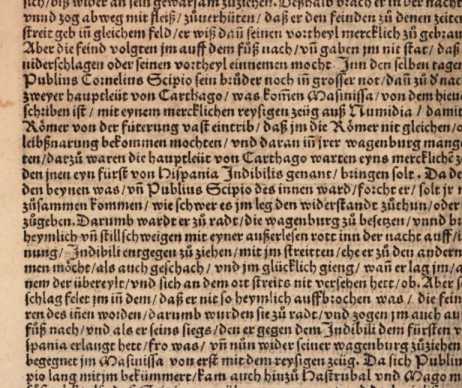 sich/ diß wider an sein gewarsam zuziehen. Deßhalb brach er in der nacht
vnnd zog abweg mit fleiß/ zuuerhüten/ daß er den feinden zů denen zeiten
streit geb in gleichem feld/ er wiß dañ seinen vortheyl mercklich zů gebrau
Aber die feind volgten jm auff dem fůß nach/ vñ gaben jm nit stat/ daß
niderschlagen oder seinen vortheyl einnemen mocht Inn den selben tagen
Publius Cornelius Scipio sein brůder noch in grosser not/ dañ zů d'nach
zweyer hauptleüt von Carthago/ was kom̃en Masinissa/ von dem hieuo
schriben ist/ mit eynem mercklichen reysigen zeüg auß Numidia/ damit
Römer von der fůterung vast eintrib/ daß jm die Römer nit gleichen/ o
leibßnarung bekommen mochten/ vnd daran in jrer wagenburg mang
ten/ darzů waren die hauptleüt von Carthago warten eyns mercklichẽ z
den jnen eyn fürst von Hispania Indibilis genant/ bringen solt. Da de
den beynen was/ vñ Publius Scipio des innen ward/ forcht er/ solt jr
zůsammen kommen/ wie schwer es jm leg den widerstandt zůthun/ oder
zůgeben. Darumb wardt er zů radt/ die wagenburg zů besetzen/ vnnd br
heymlich vñ stillschweigen mit eyner außerlesen rott inn der nacht auff/ i
nung/ Indibili entgegen zů ziehen/ mit jm streitten/ ehe er zů den andern
men möcht/ als auch geschach/ vnd jm glücklich gieng/ wañ er lag jm/ a
nem der übereylt/ vnd sich an dem ort streits nit versehen hett/ ob. Aber s
schlag felet jm in dem/ daß er nit so heymlich auffbrochen was/ die fein
ren des innen worden/ darumb wurden sie zů radt/ vnd zogen jm auch au
fůß nach/ vnd als er seins siegs/ den er gegen dem Indibili dem fürsten v
spania erlangt hett/ fro was/ vñ nůn wider seiner wagenburg zůziehen
begegnet jm Masinissa von erst mit dem reysigen zeüg. Da sich Publiu
pio lang mit jm bekümmert/ kam auch hinzů Hastrubal vnd Mago m